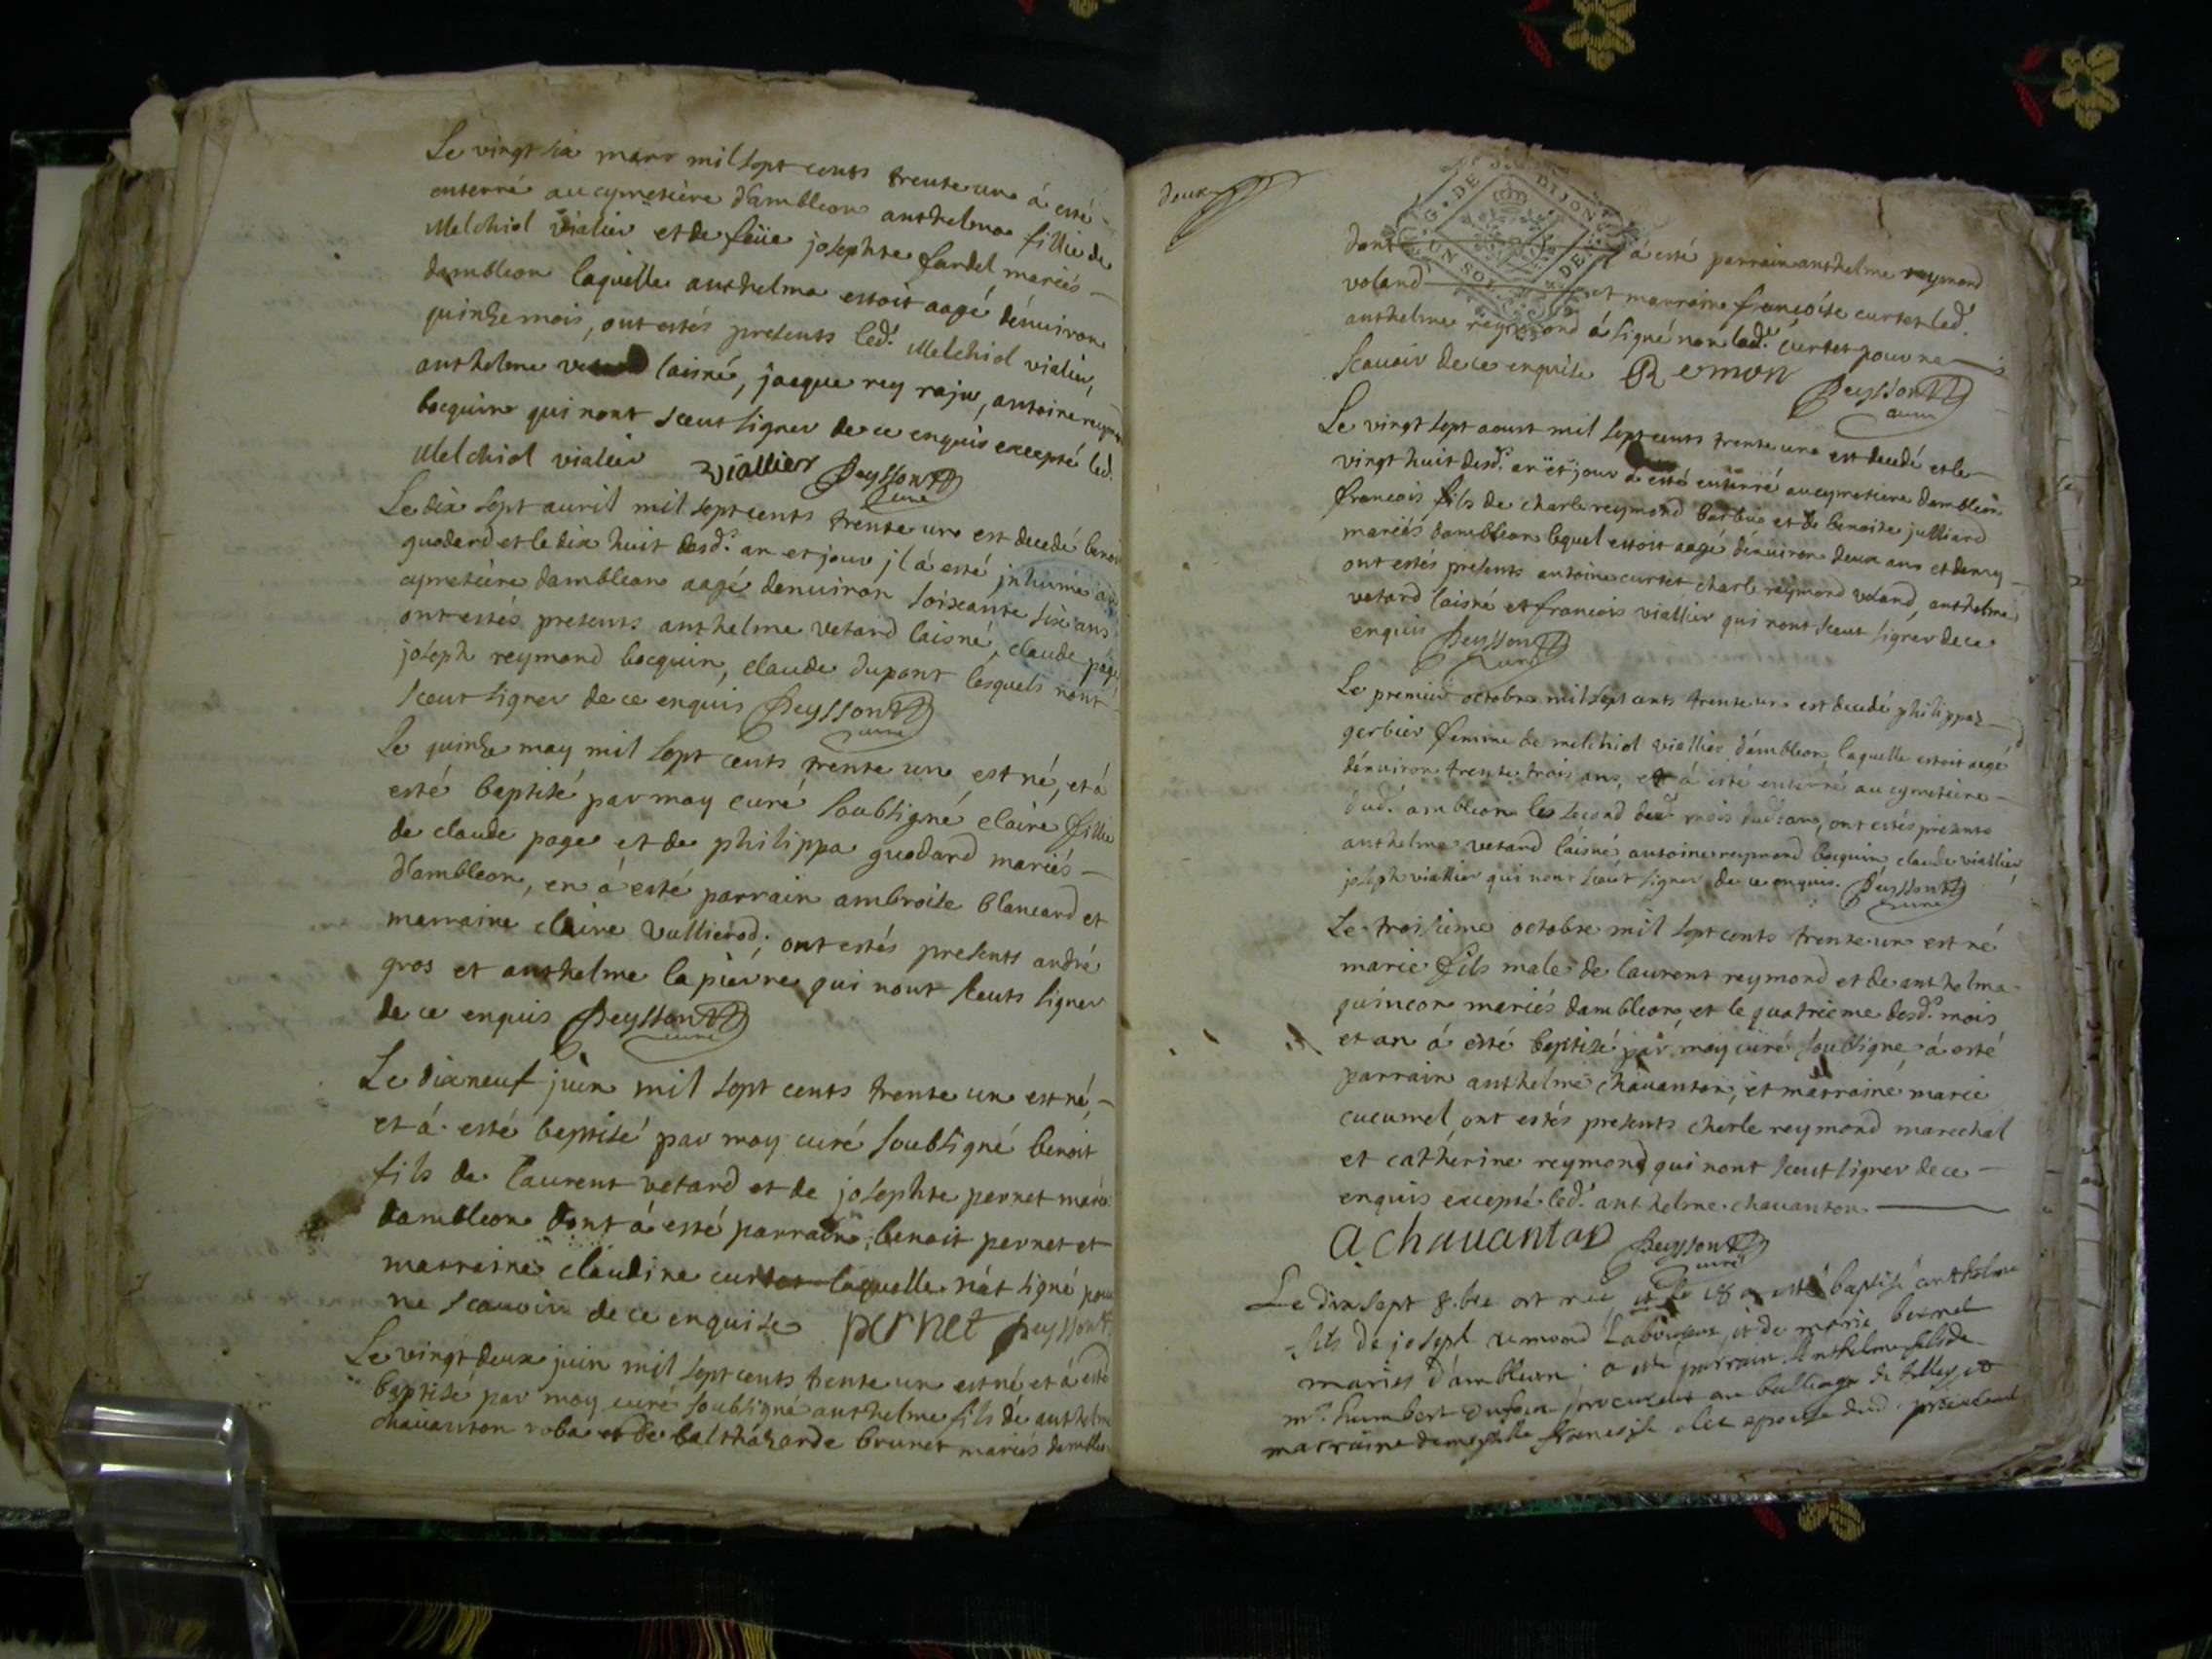 Le vingt six mars mil sept cents trente un á esté
enterré au cymetière d'ambleon anthelma fillie de
Melchiol vialier et de feüe josephte fardel mariés
dambleon laquelle anthelma estoit aagé dénuiron
quinze mois, ont estés presents led. Melchiol vialier,
anthelme laisné, jacque rey raju, antoine reymond
bocquin qui nont sceut signer de ce enquis excepté led.
Melchiol vialier viallier Peysson
curé
Le dix sept auril mil sept cents trente un est decedé benoit
guodard et le dix huit desd. an et jour jl á esté jnhumé au
cymetière dambleon aagé denuiron soixante six ans
ont estés presents anthelme vetard laisné, claude page,
joseph reymond bocquin, claude dupont lesquels nont
sceut signer de ce enquis Peysson
curé
Le quinze may mil sept cents trente un est né, et á
esté baptisé par moy curé soubsigné claire fillie
de claude page et de philippa guodard mariés
d'ambleon, en á esté parrain ambroise blancard et
marraine claire vullierod; ont estés presents andré
gros et anthelme lapierre qui nont sceuts signer
de ce enquis Peysson
curé
Le dixneuf juin mil sept cents trente un est né,
et á esté baptisé par moy curé soubsigné benoit
fils de laurent vetard et de josephte pernet mariés
dambleon dont á esté parrain, benoit pernet et
marraine claudine curtet laquelle nat signé pour
ne scauoir de ce enquise pernet peysson
Le vingt deux juin mil sept cents trente un est né et á esté
baptisé par moy curé soubsigné anthelme fils de anthelme
chauanton roba et de balthazarde brunet mariés dambleon
deux
G. DE DIJON
UN SOL DE
dont á esté parrain anthelme reymond
voland et marraine francoise curtet led.
anthelme reymond á signé non lad. curtet pour ne
scauoir de ce enquise Remon Peysson
curé
Le vingt sept aoust mil sept cents trente un est decedé et le
vingt huit desd. an et jour á esté enterré au cymetiere dambleon
francois fils de charle reymond barbié et de benoite julliard
mariés dambleon lequel estoit aagé dénuiron deux ans et demy
ont estés presents antoine curtet charle reymond voland, anthelme
vetard laisné et francois viallier qui nont sceut signer de ce
enquis Peysson
curé
Le premier octobre mil sept cents trente un est decedé philippaz
gerbier femme de melchiol viallier d'ambleon, laquelle estoit aagé
dénuiron trente trois ans, et á esté enterré au cymetière
dud. ambleon le second dud. mois dud. an, ont estés presents
anthelme vetard láisné antoine reymond bocquin claude viallier,
joseph viallier qui nont sceut signer de ce enquis. Peysson
curé
Le troisieme octobre mil sept cents trente un est né
marie fils male de laurent reymond et de anthelma
quincon mariés dambleon, et le quatrieme desd. mois
et an á esté baptisé par moy curé soubsigné á esté
parrain anthelme chauanton, et marraine marie
cucurnel, ont estés presents cherle reymond marechal
et catherine reymond qui nont sceut signer de ce
enquis excepté led. anthelme chauanton
A chauanton Peysson
curé
Le dix sept 8.bre est née, et le 18 a esté baptisé anthelme
fils de joseph remond laboureur, et de marie bernel
mariés d'ambleon a esté parrain Anthelme fils de
mr. humbert procureur au balliage de belley et
marraine demoiselle francoise epouse dud. procureur